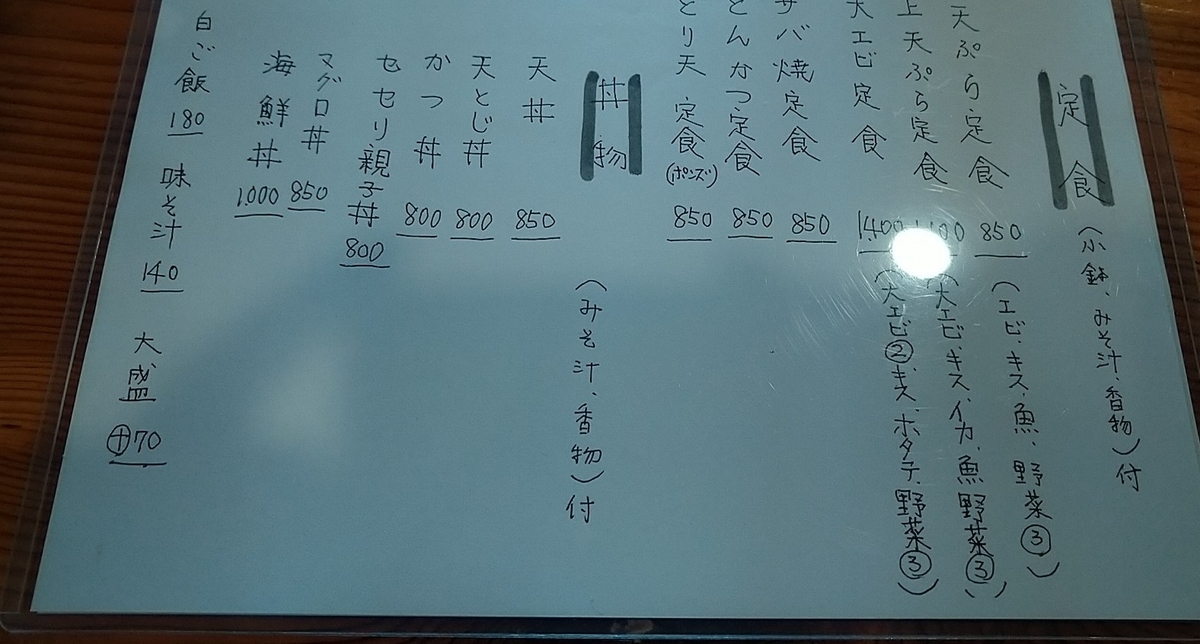 定食 (小鉢、みそ汁、香物)付
天ぷら定食 850 (エビ、キス、魚、野菜③)
上天ぷら定食 (大エビ、キス、イカ、魚 野菜③)
大エビ定食 1,400 (大エビ②、キス、ホタテ、野菜③)
サバ焼定食 850
とんかつ定食 850
とり天定食(ポンズ) 850
丼物 (みそ汁、香物)付
天丼 850
天とじ丼 800
かつ丼 800
セセリ親子丼 800
マグロ丼 850
海鮮丼 1,000
白ご飯 180 味そ汁 140 大盛 ⊕70